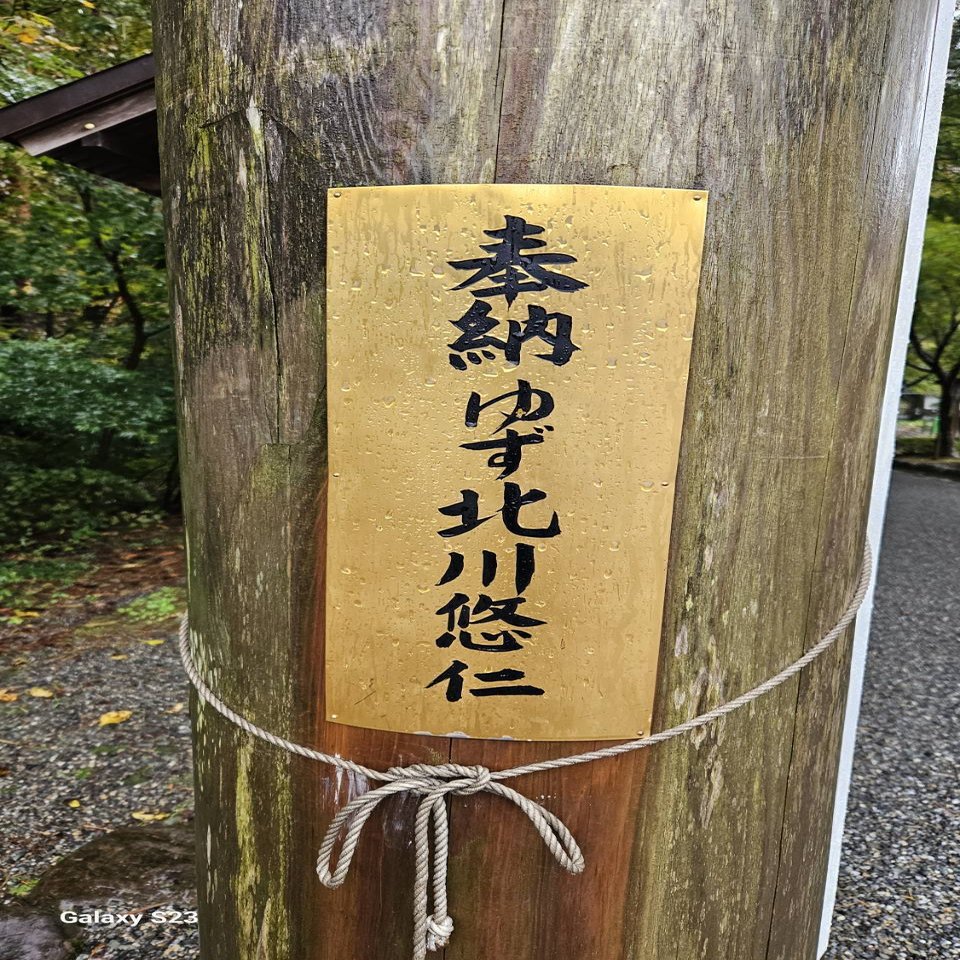 奉納 ゆず 北川悠仁
Galaxy S23